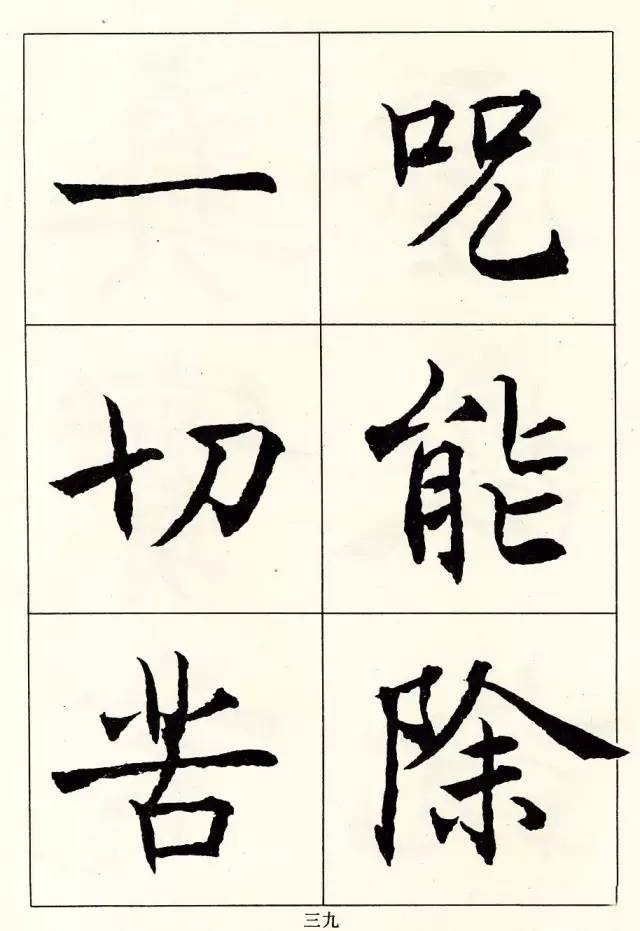 呪能除
一切苦
三九